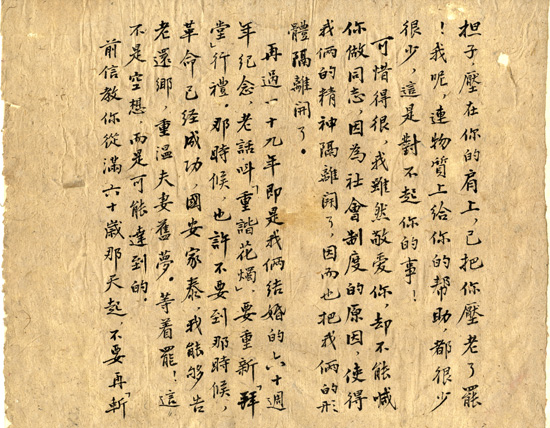 担子壓,在你的肩上,已把你壓老了罷
!我呢,連物質上給你的幫助,都很少
很少,這是對不起你的事!
可惜得很,我雖然敬愛你,却不能喊
你做同志,因為社會制度的原因,使得
我俩的精神隔離開了,因而也把我俩的形
體隔離開了。
再過一十九年即是我俩結婚的六十週
年紀念,老話叫「重諧花燭」,要重新「拜
堂」行禮。那時候,也許不要到那時候,
革命已经成功,國安家泰,我能够告
老還鄉,重温夫妻舊夢。等着罷!這
不是空想,而是可能達到的。
前信教你從滿六十歲那天起,不要再「斬